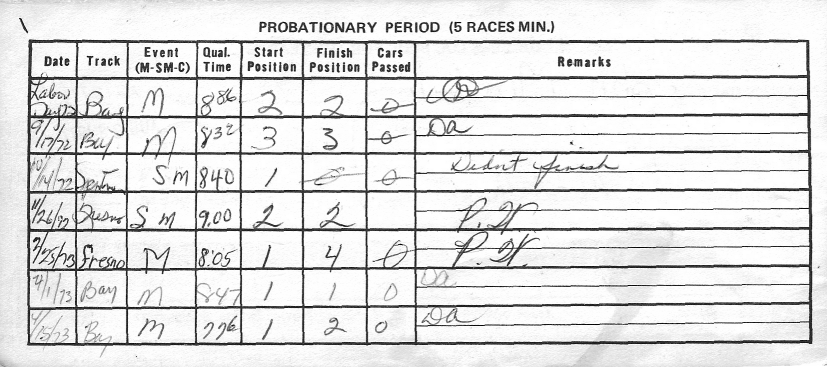 PROBATIONARY PERIOD (5 RACES MIN.)
Date Track Event (M-SM-C) Qual. Time Start Position Finish Position Cars Passed Remarks
Labor Day 72 Bay M 886 2 2 0
9/17/72 Bay M 832 3 3 0 Da
10/14/72 S M 840 1 0 0 Didn't finish
11/26/72 Fresno S M 9.00 2 2 P.W.
2/25/73 Fresno M 8:05 1 4 0 P.W.
4/1/73 Bay M 847 1 1 0 Da
4/15/73 Bay M 776 1 2 0 Da